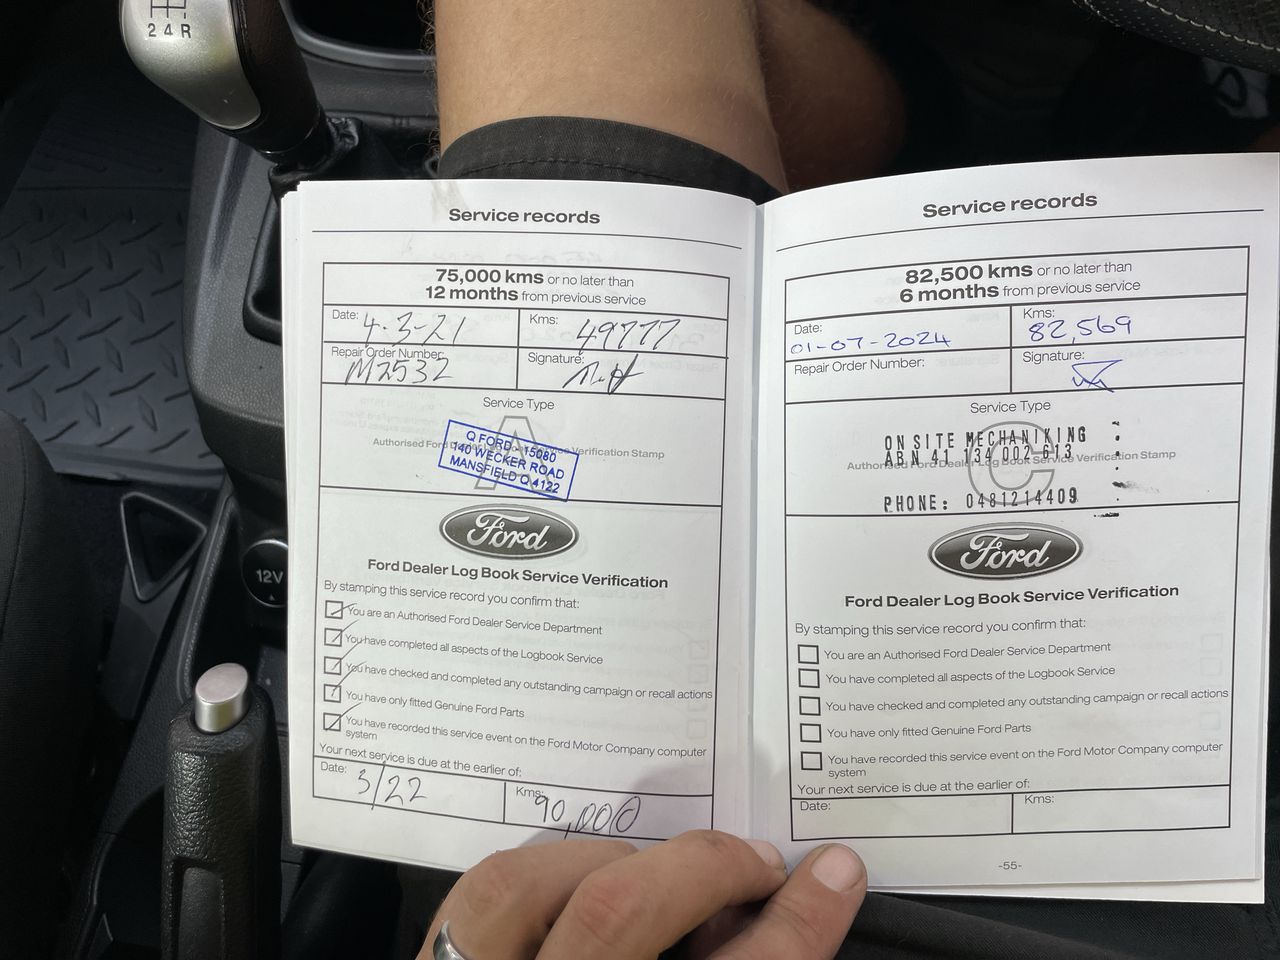 2 4 R
12V
Service records
75,000 kms or no later than
12 months from previous service
Date: 4-3-21
Kms: 49777
Repair Order Number: M2532
Signature:
Service Type
A
Authorised Ford Dealer Log Book Service Verification Stamp
Q FORD 15080
140 WECKER ROAD
MANSFIELD Q 4122
Ford
Ford Dealer Log Book Service Verification
By stamping this service record you confirm that:
You are an Authorised Ford Dealer Service Department
You have completed all aspects of the Logbook Service
You have checked and completed any outstanding campaign or recall actions
You have only fitted Genuine Ford Parts
You have recorded this service event on the Ford Motor Company computer
system
Your next service is due at the earlier of:
Date: 3/22
Kms: 90,000
Service records
82,500 kms or no later than
6 months from previous service
Date: 01-07-2024
Kms: 82,569
Repair Order Number:
Signature:
Service Type
C
Authorised Ford Dealer Log Book Service Verification Stamp
ON SITE MECHANIKING
ABN 41 134 002 613
PHONE: 0481214409
Ford
Ford Dealer Log Book Service Verification
By stamping this service record you confirm that:
You are an Authorised Ford Dealer Service Department
You have completed all aspects of the Logbook Service
You have checked and completed any outstanding campaign or recall actions
You have only fitted Genuine Ford Parts
You have recorded this service event on the Ford Motor Company computer
system
Your next service is due at the earlier of:
Date:
Kms:
-55-